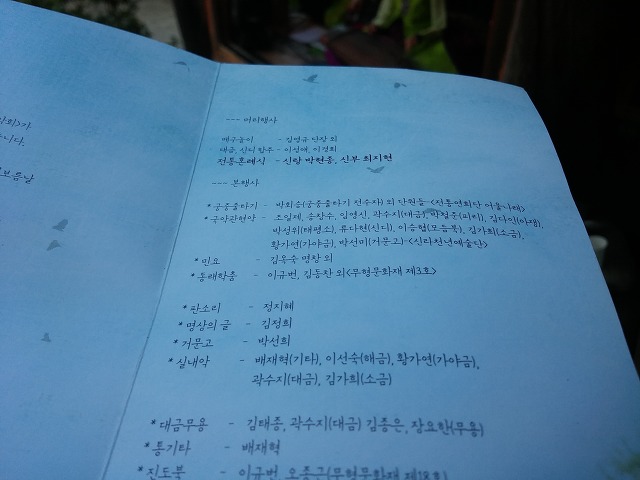 가
니다.
보름날
--- 머리행사
매구놀이 - 김영규 단장 외
대금, 신디 합주 - 이성애, 이경희
전통혼례식 - 신랑 박현종, 신부 최지현
--- 본행사
*궁중줄타기 - 박회승(궁중줄타기 전수자) 외 단원들 <전통연희단 아울나래>
*국악관현악 - 조일제, 송창수, 임영신, 곽수지(대금), 박철웅(피리), 김다인(아쟁),
박성위(태평소), 류다현(신디), 이승협(모듬북), 김가희(소금),
황가연(가야금), 박선미(거문고) <신라천년예술단>
*민요 - 김옥숙 명창 외
*동래학춤 - 이규번, 김동찬 외<무형문화재 제3호>
*판소리 - 정지혜
*명상의 글 - 김정희
*거문고 - 박선희
*실내악 - 배재혁(기타), 이선숙(해금), 황가연(가야금),
곽수지(대금), 김가희(소금)
*대금무용 - 김태종, 곽수지(대금) 김종은, 장요한(무용)
*통기타 - 배재혁
*진도북 - 이규번, 오종근(무형문화재 제18호)